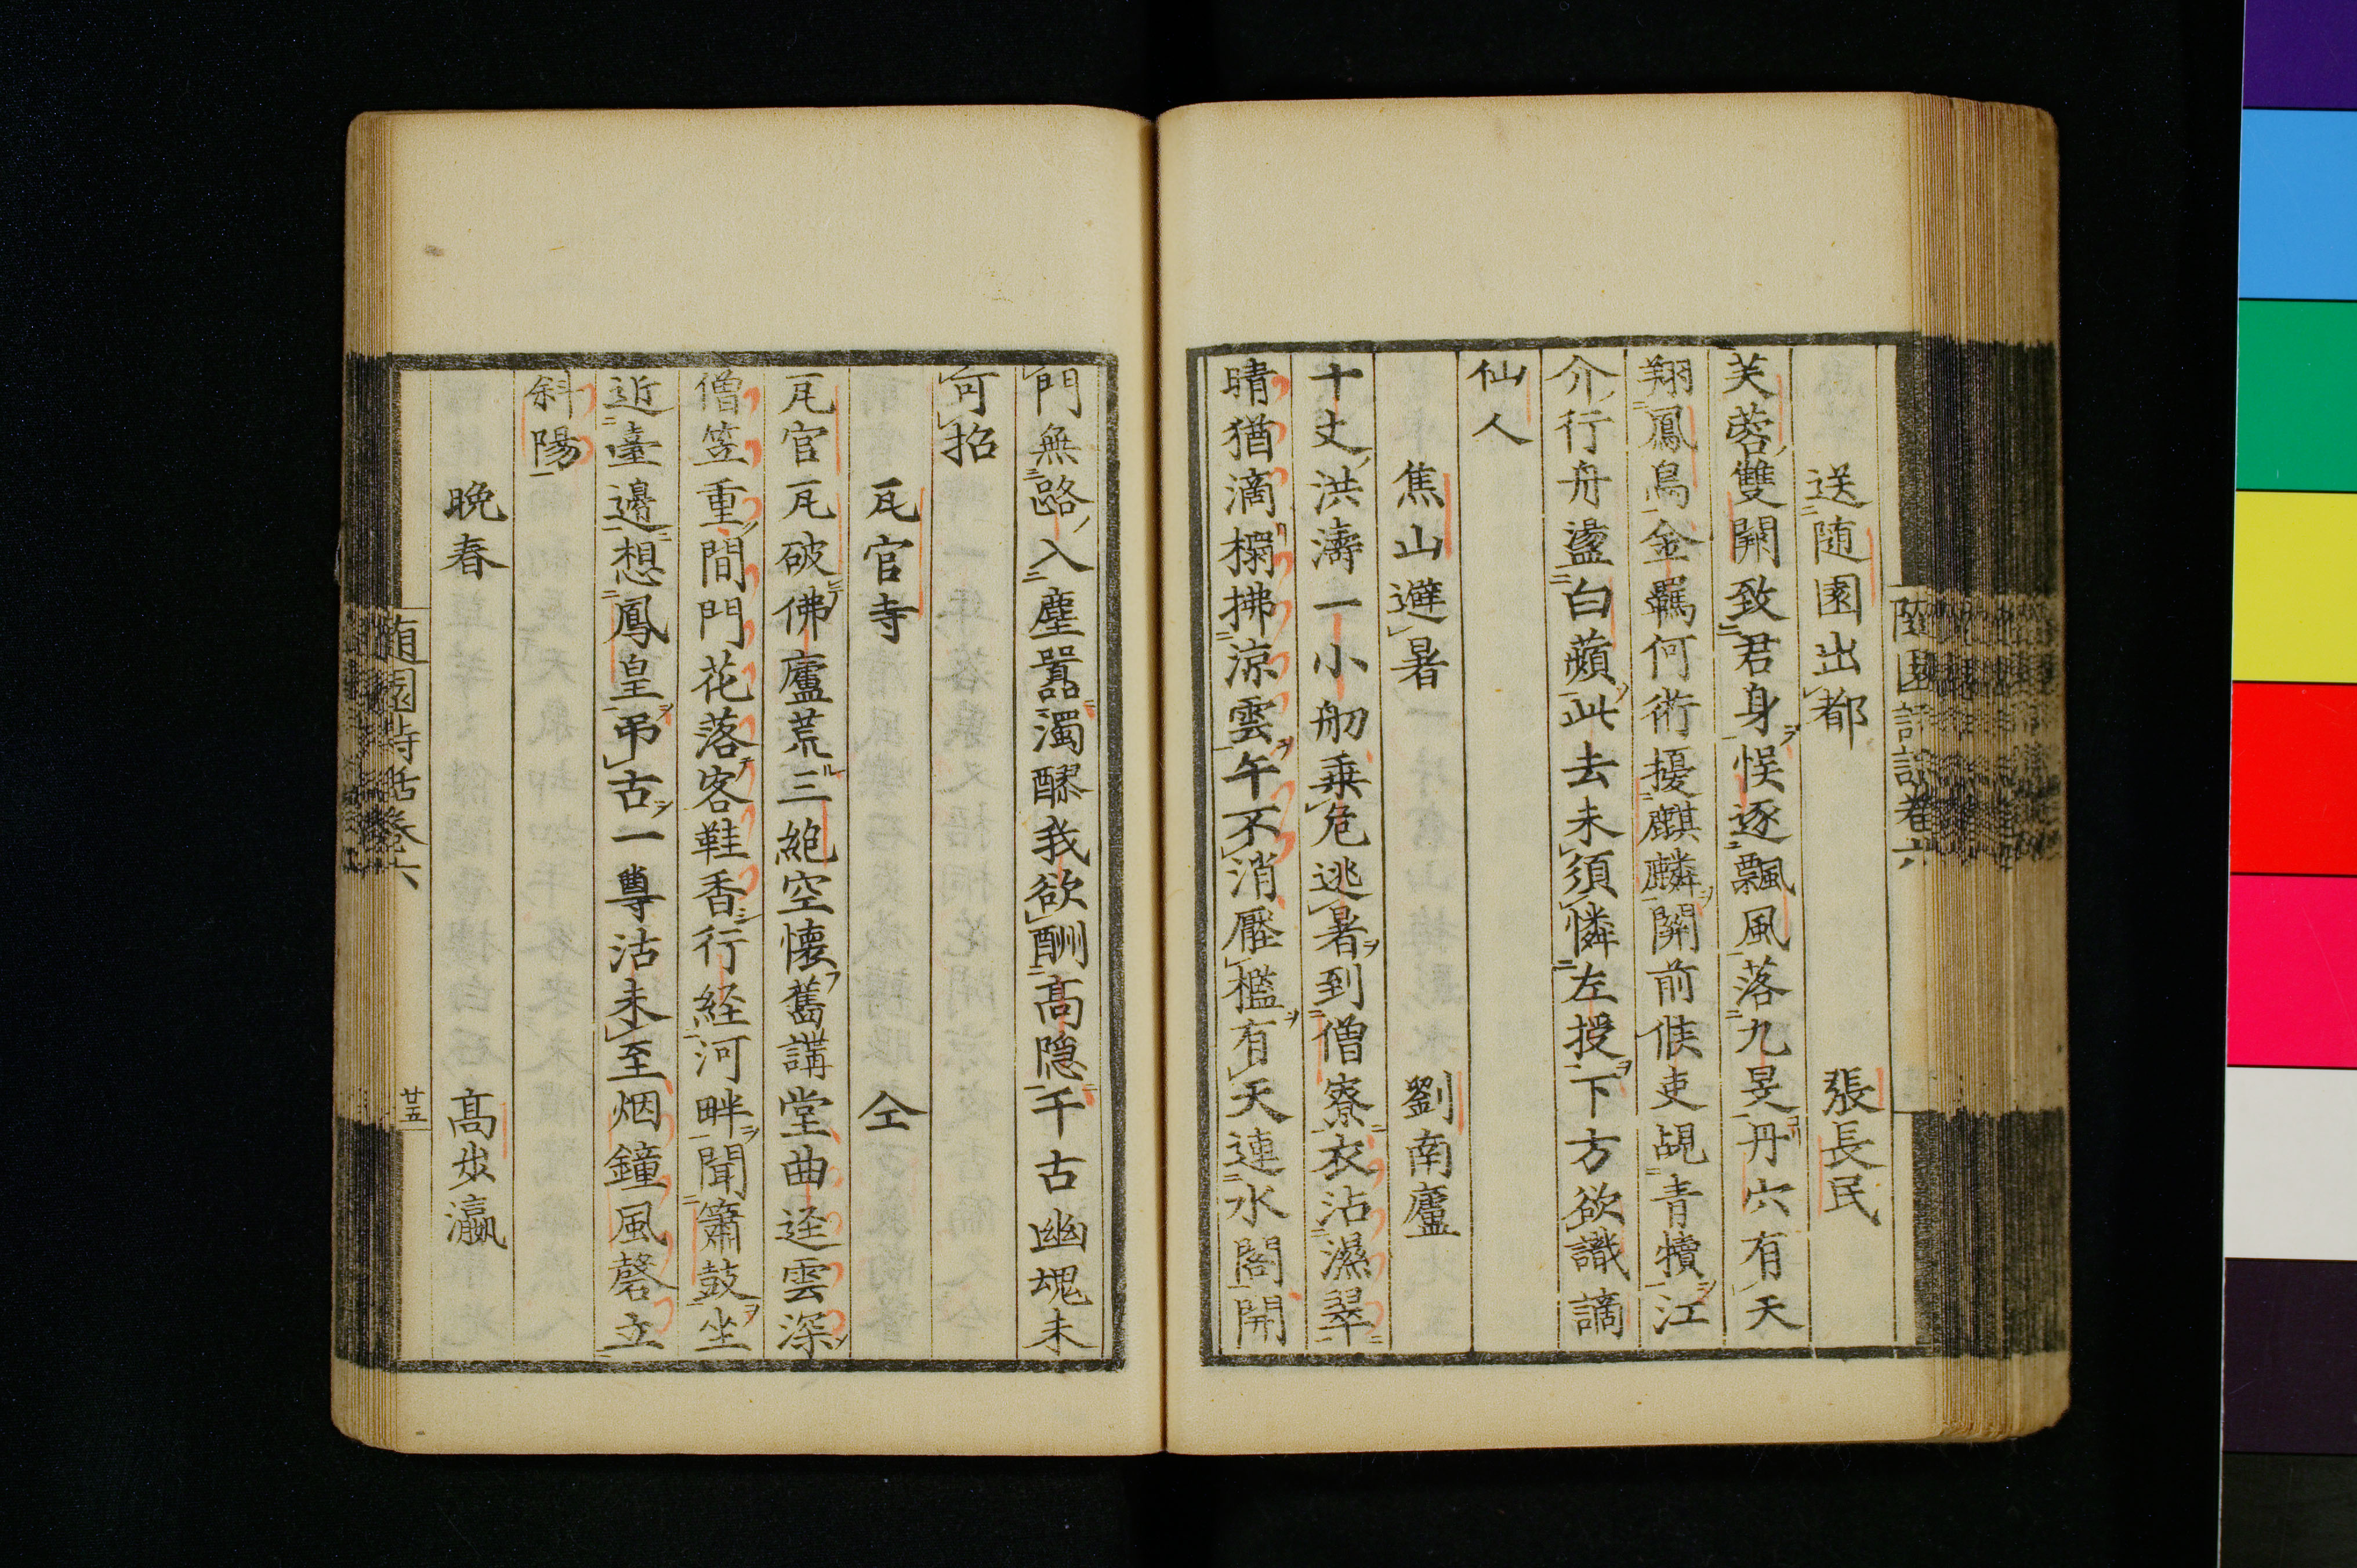 送随園出都 張長民
芙蓉雙闕致君身悮逐飄風落九旻丹穴有天
翔鳳鳥金羈何術擾麒麟關前候吏覘青犢江
介行舟盪白蘋此去未須憐左授下方欲識謫
仙人
焦山避暑 劉南廬
十丈洪濤一小舠乗危逃暑到僧寮衣沾濕翠
晴猶滴榻拂涼雲午不消壓檻有天連水闊開
門無路入塵囂濁醪我欲酬髙隠千古幽魂未
可招
瓦官寺 仝
瓦官瓦破佛廬荒三絶空懐舊講堂曲逕雲深
僧笠重間門花落客鞋香行経河畔聞簫鼓坐
近臺邊想鳳皇弔古一尊沽未至烟鐘風磬立
斜陽
晩春 髙步瀛
随園詩話巻六
廿五